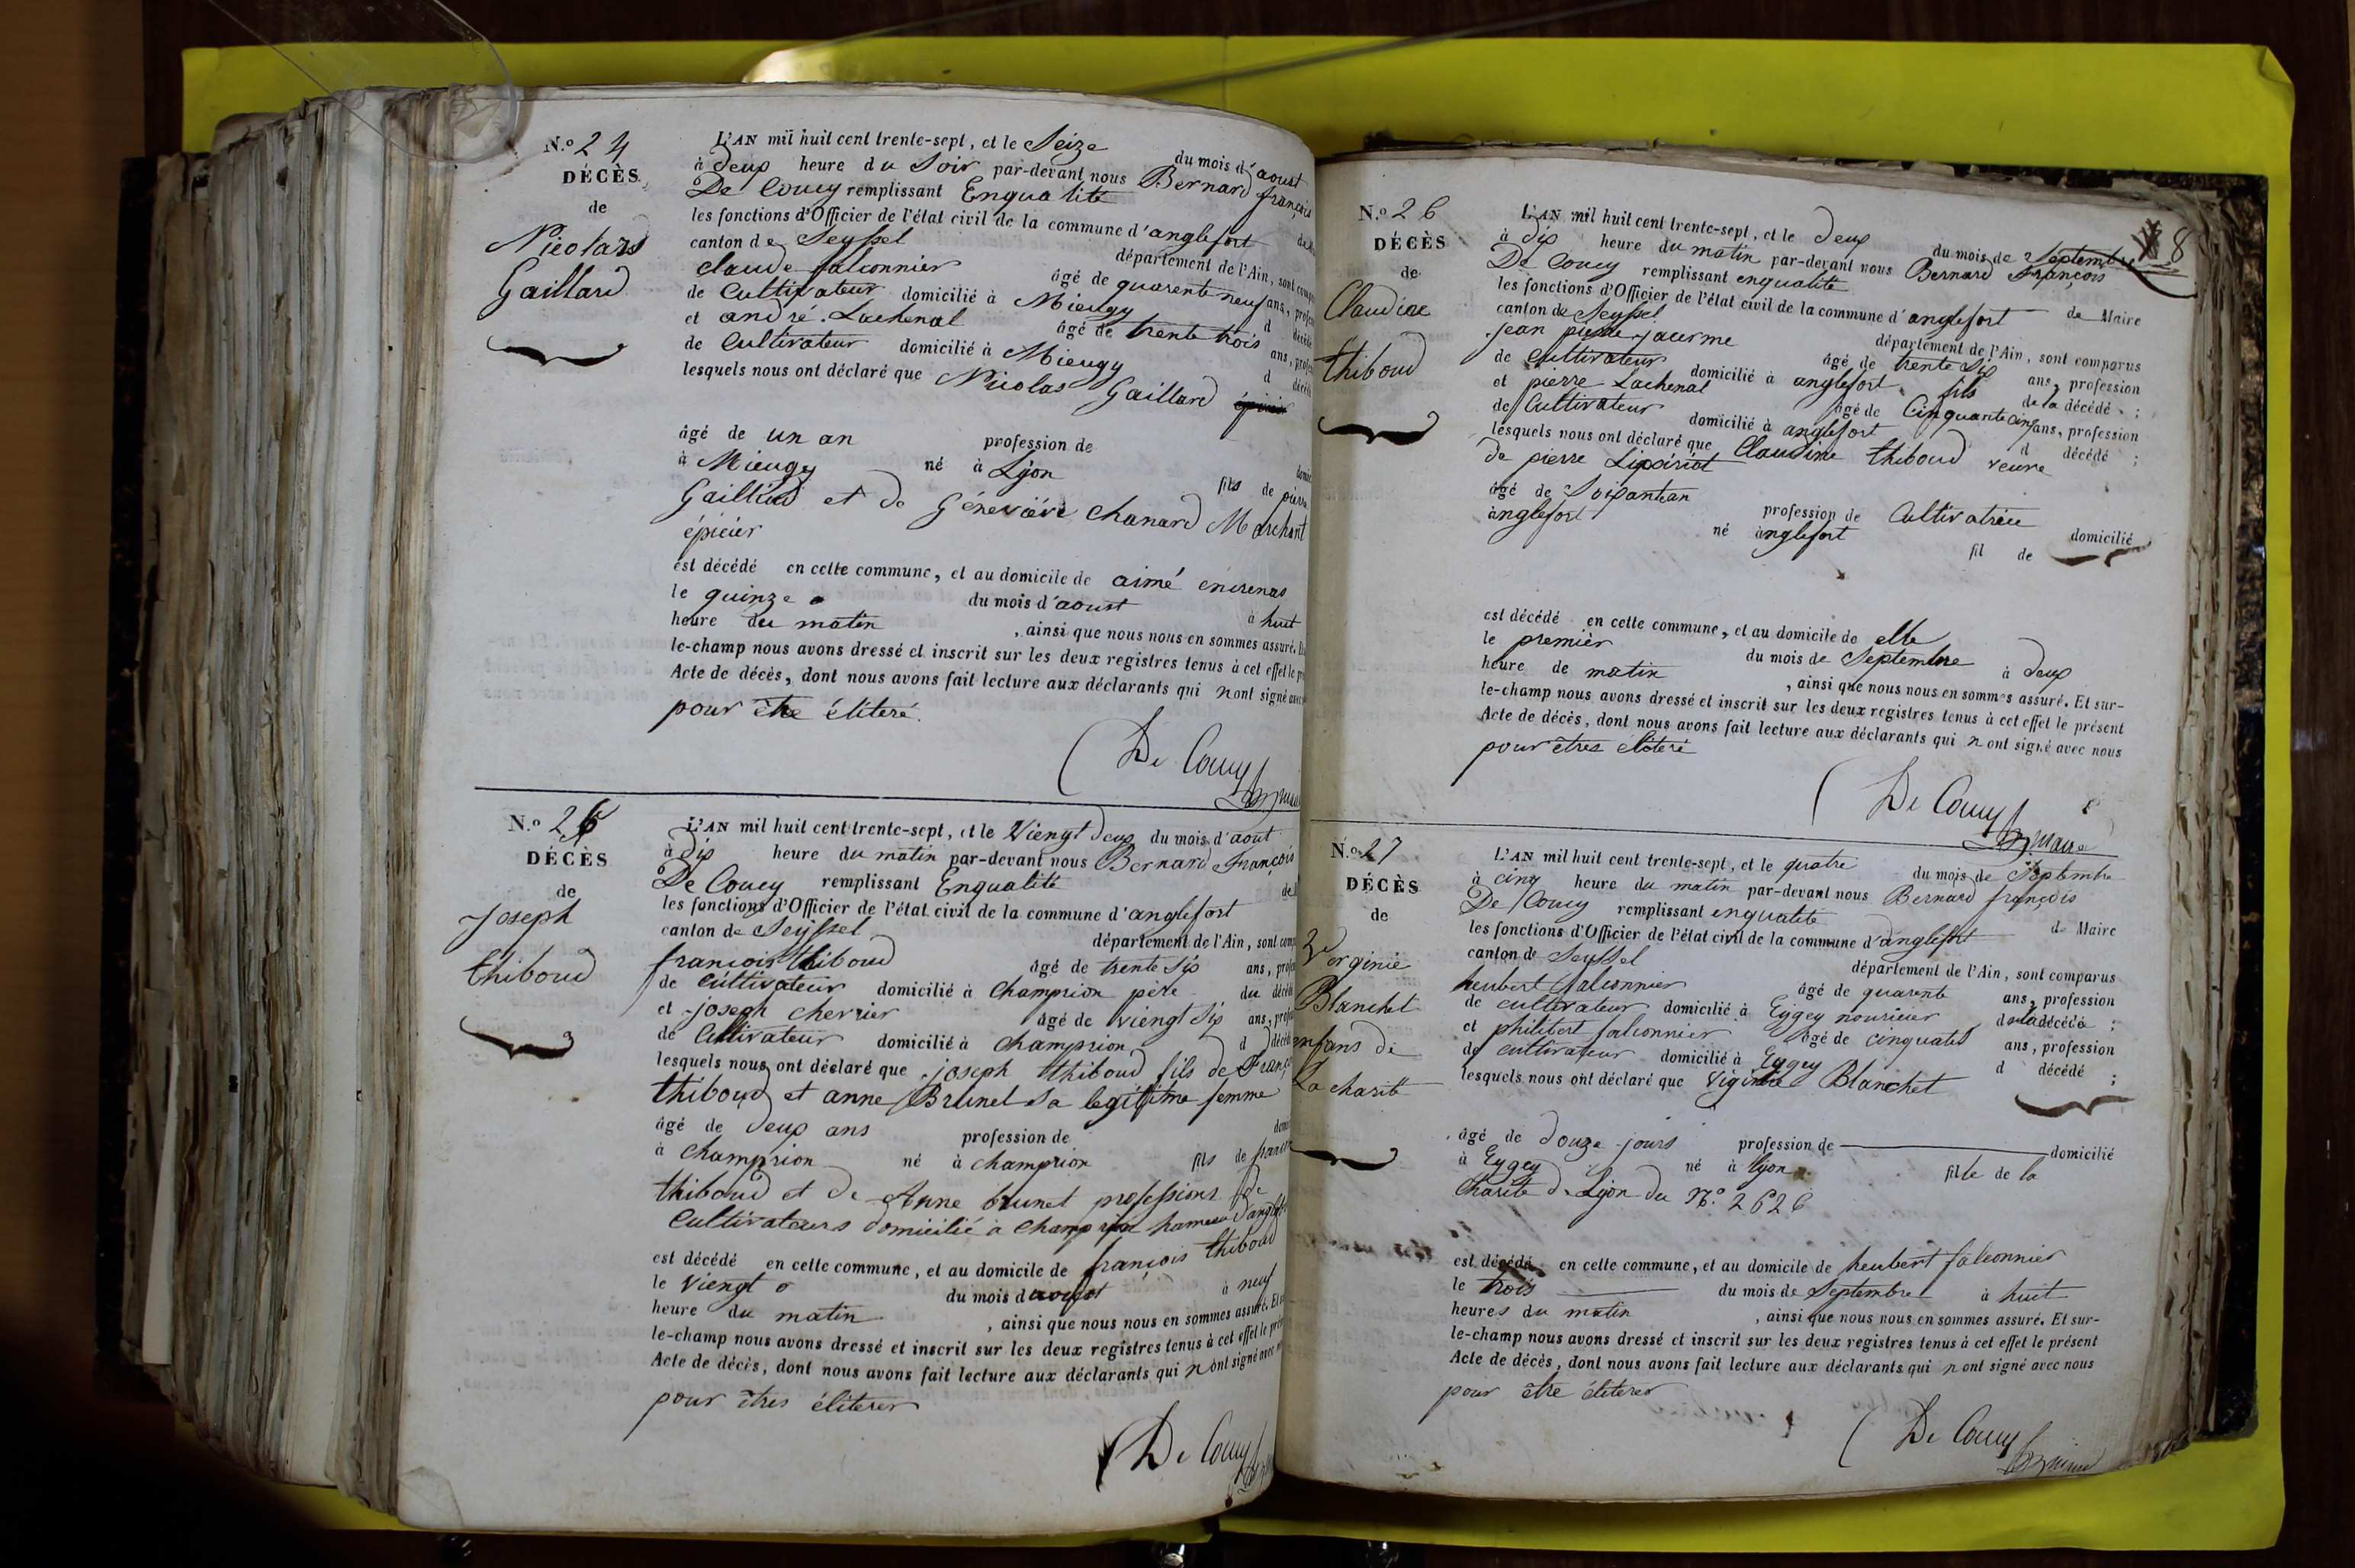 N.º 24
DÉCÈS
de
Nicolas
Gaillard
L'AN mil huit cent trente-sept, et le Seize du mois d'aoust
à deux heure du Soir par-devant nous Bernard françois
De Coucy remplissant Enqualité
les fonctions d'Officier de l'état civil de la commune d'anglefort
canton de Seyssel département de l'Ain, sont
claude falconnier âgé de quarente neuf ans,
de Cultivateur domicilié à Mieugy d décédé
et andré Lachenal âgé de trente trois ans,
de Cultivateur domicilié à Mieugy d décédé
lesquels nous ont déclaré que Nicolas Gaillard
âgé de un an profession de
à Mieugy né à Lyon fils de pierre
Gaillard et de Géneviève Chanard Marchant
épicier
est décédé en cette commune, et au domicile de aimé
le quinze du mois d'aoust à huit
heure du matin, ainsi que nous nous en sommes assuré.
le-champ nous avons dressé et inscrit sur les deux registres tenus à cet effet le
Acte de décès, dont nous avons fait lecture aux déclarants qui nont signé avec
pour être éliteré.
De Coucy
N.º 25
DÉCÈS
de
Joseph
thiboud
L'AN mil huit cent trente-sept, et le Viengt deux du mois d'aout
à dix heure du matin par-devant nous Bernard François
De Coucy remplissant Enqualité
les fonctions d'Officier de l'état civil de la commune d'anglefort
canton de Seyssel département de l'Ain, sont
françois thiboud âgé de trente Six ans,
de Cultivateur domicilié à Champrion père du décédé
et joseph chevrier âgé de viengt Six ans,
de Cultivateur domicilié à Champrion d décédé
lesquels nous ont déclaré que joseph thiboud fils de
thiboud et anne Brunet Sa legitime femme
âgé de deux ans profession de
à Champrion né à champrion fils de
thiboud et de Anne brunet professions de
Cultivateurs domicilié à Champrion hameau
est décédé en cette commune, et au domicile de françois thiboud
le Viengt du mois d à neuf
heure du matin, ainsi que nous nous en sommes assuré.
le-champ nous avons dressé et inscrit sur les deux registres tenus à cet effet le
Acte de décès, dont nous avons fait lecture aux déclarants qui nont signé avec
pour êtres éliterer
De Coucy
8
N.º 26
DÉCÈS
de
Claudine
thiboud
L'AN mil huit cent trente-sept, et le deux du mois de Septembre
à dix heure du matin par-devant nous Bernard François
De Coucy remplissant enqualité de Maire
les fonctions d'Officier de l'état civil de la commune d'anglefort
canton de Seyssel département de l'Ain, sont comparus
jean pierre jaurme âgé de trente Six ans, profession
de Cultivateur domicilié à anglefort fils de la décédé ;
et pierre Lachenal âgé de Cinquante cinq ans, profession
de Cultivateur domicilié à anglefort d décédé ;
lesquels nous ont déclaré que Claudine thiboud veuve
de pierre
âgé de Soixantean profession de Cultivatrice domicilié
anglefort né anglefort fil de
est décédé en cette commune, et au domicile de elle
le premier du mois de Septembre à deux
heure de matin, ainsi que nous nous en sommes assuré. Et sur-
le-champ nous avons dressé et inscrit sur les deux registres tenus à cet effet le présent
Acte de décès, dont nous avons fait lecture aux déclarants qui nont signé avec nous
pour êtres éliteré
De Coucy
maire
N.º 27
DÉCÈS
de
Verginie
Blanchet
enfans de
La charité
L'AN mil huit cent trente-sept, et le quatre du mois de Septembre
à cinq heure du matin par-devant nous Bernard françois
De Coucy remplissant enqualité de Maire
les fonctions d'Officier de l'état civil de la commune d'anglefort
canton de Seyssel département de l'Ain, sont comparus
heubert falconnier âgé de quarente ans, profession
de cultivateur domicilié à Eygey nouricier de la décédé ;
et philibert falconnier âgé de ans, profession
de cultivateur domicilié à Eygey d décédé ;
lesquels nous ont déclaré que Viginie Blanchet
âgé de douze jours profession de domicilié
à Eygey né à lyon fille de la
Charité de Lyon du Nº. 2626
est décédé en cette commune, et au domicile de heubert falconnier
le trois du mois de Septembre à huit
heures du matin, ainsi que nous nous en sommes assuré. Et sur-
le-champ nous avons dressé et inscrit sur les deux registres tenus à cet effet le présent
Acte de décès, dont nous avons fait lecture aux déclarants qui nont signé avec nous
pour être éliterer
De Coucy